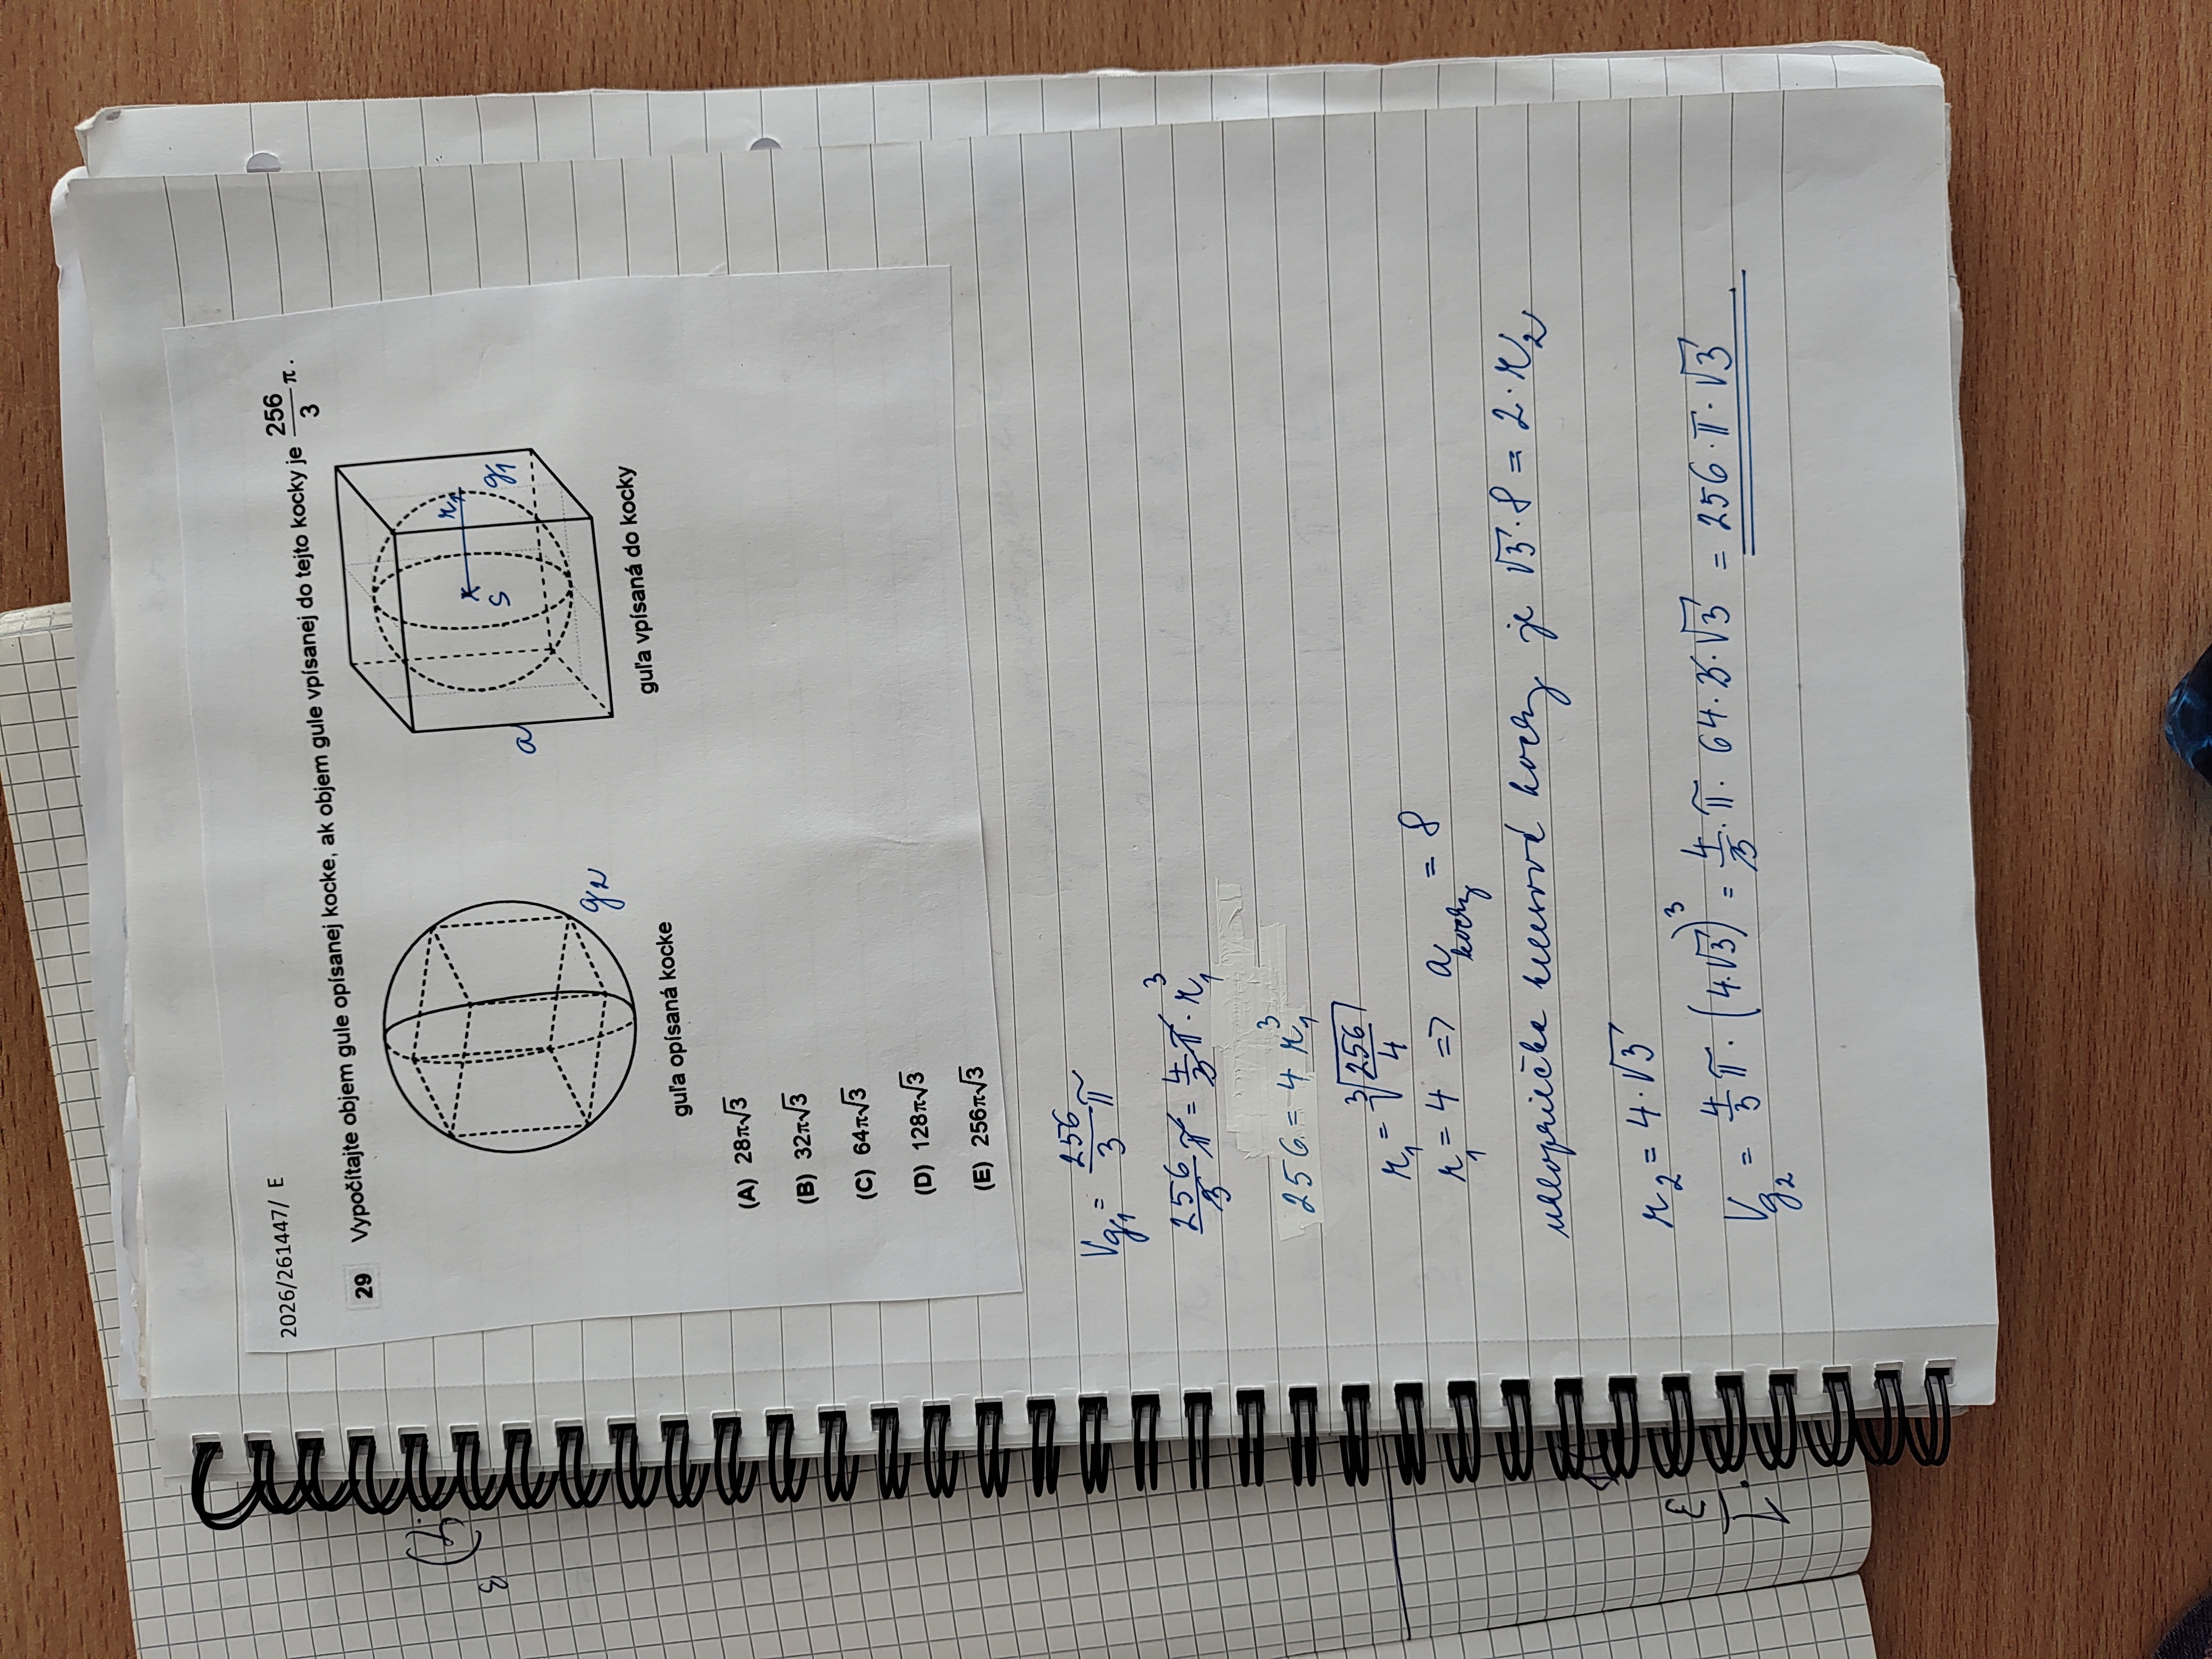 2026/261447/ E
29 Vypočítajte objem gule opísanej kocke, ak objem gule vpísanej do tejto kocky je 256/3 π.
g₂
a
S
r₁
g₁
guľa opísaná kocke
guľa vpísaná do kocky
(A) 28π√3
(B) 32π√3
(C) 64π√3
(D) 128π√3
(E) 256π√3
V_g₁ = 256/3 π
256/3 π = 4/3 π · r₁³
256 = 4 r₁³
r₁ = ∛(256/4)
r₁ = 4 => a kocky = 8
uhlopriečka kocky je √3 · 8 = 2 · r₂
r₂ = 4 · √3
V_g₂ = 4/3 π · (4·√3)³ = 4/3 · π · 64 · 3 · √3 = 256 · π · √3